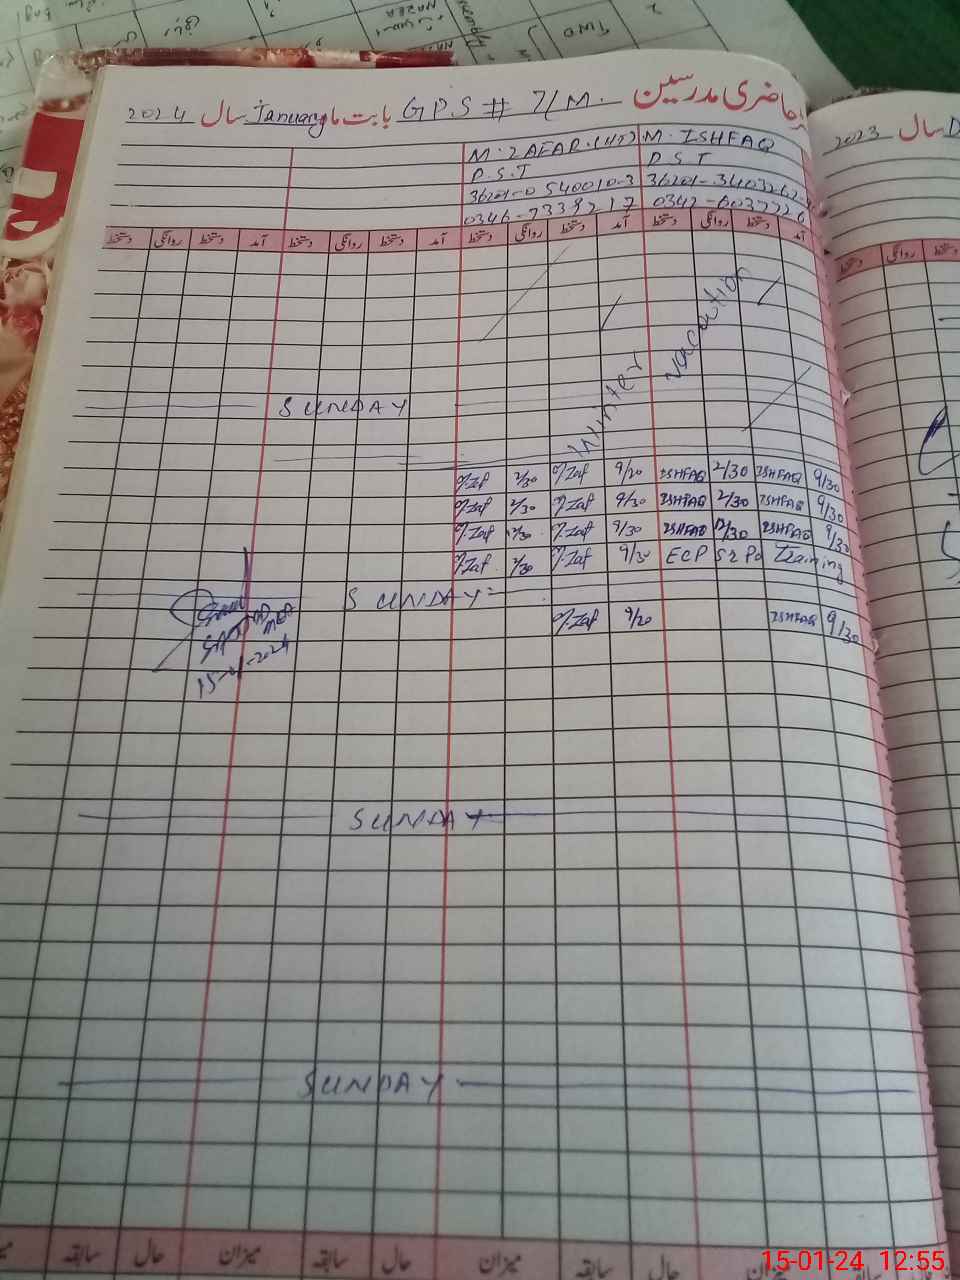 حاضری مدرسین GPS # 7/M. بابت ماہ January سال 2024
M. ZAFAR. (HT) M. ISHFAQ
P.S.T P.S.T
36201-0540010-3 36201-3403262-
0346-7338217 0342-6037726
آمد دستخط روانگی دستخط آمد دستخط روانگی دستخط آمد دستخط روانگی دستخط آمد دستخط روانگی دستخط
Winter vacation
SUNDAY
9/30 ISHFAQ 2/30 ISHFAQ 9/20 M.Zaf 2/30 M.Zaf
9/30 ISHFAQ 2/30 ISHFAQ 9/30 M.Zaf 2/30 M.Zaf
9/30 ISHFAQ 12/30 ISHFAQ 9/30 M.Zaf 12/30 M.Zaf
ECP Training 9/30 M.Zaf 2/30 M.Zaf
SUNDAY
9/30 ISHFAQ 9/20 M.Zaf
MEA
15-01-2024
SUNDAY
SUNDAY
میزان حال سابقہ میزان حال سابقہ میزان حال سابقہ
2023 سال
روانگی دستخط
TWO
15-01-24 12:55